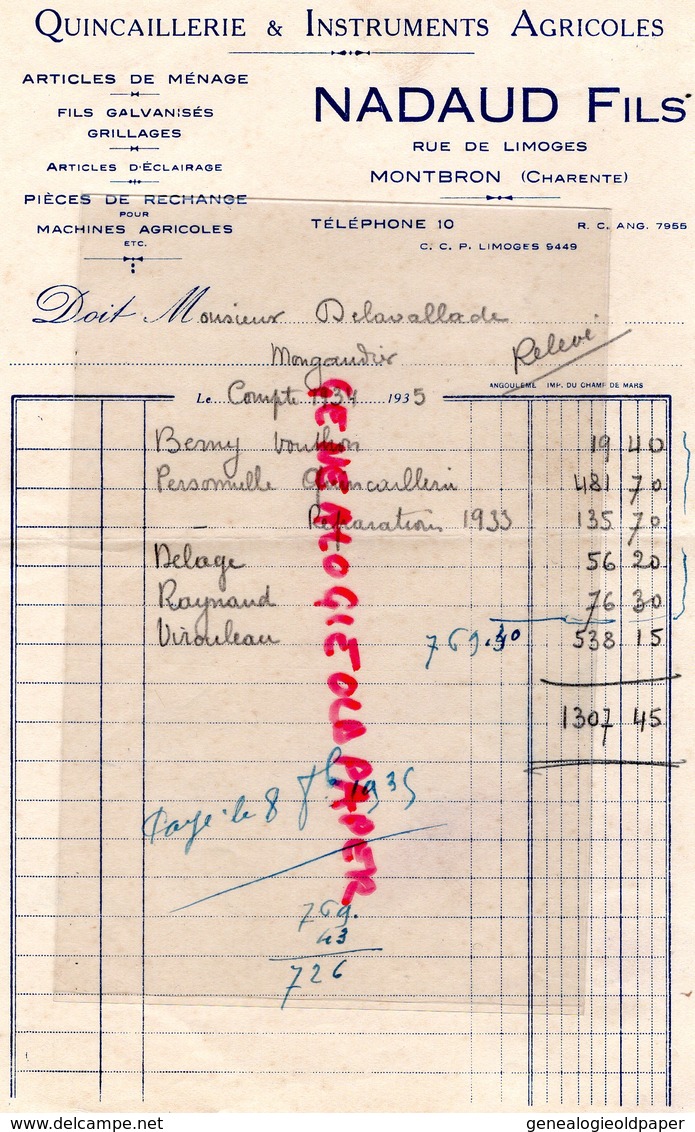 QUINCAILLERIE & INSTRUMENTS AGRICOLES
ARTICLES DE MÉNAGE
FILS GALVANISÉS
GRILLAGES
ARTICLES D'ÉCLAIRAGE
PIÈCES DE RECHANGE
POUR
MACHINES AGRICOLES
ETC.
NADAUD FILS
RUE DE LIMOGES
MONTBRON (CHARENTE)
TÉLÉPHONE 10
R. C. ANG. 7955
C. C. P. LIMOGES 9449
Doit Monsieur Delavallade
Mongaudier
Relevé
ANGOULÊME IMP. DU CHAMP DE MARS
Le Compte 1934 1935
Berny Vouthon 19 40
Personnelle Quincaillerie 481 70
- Réparations 1933 135 70
Delage 56 20
Raynaud 76 30
Virouleau 769.30 538 15
1307 45
Payé le 8 1935
769.
43
726
GENEALOGIEOLDPAPER
www.delcampe.net
genealogieoldpaper